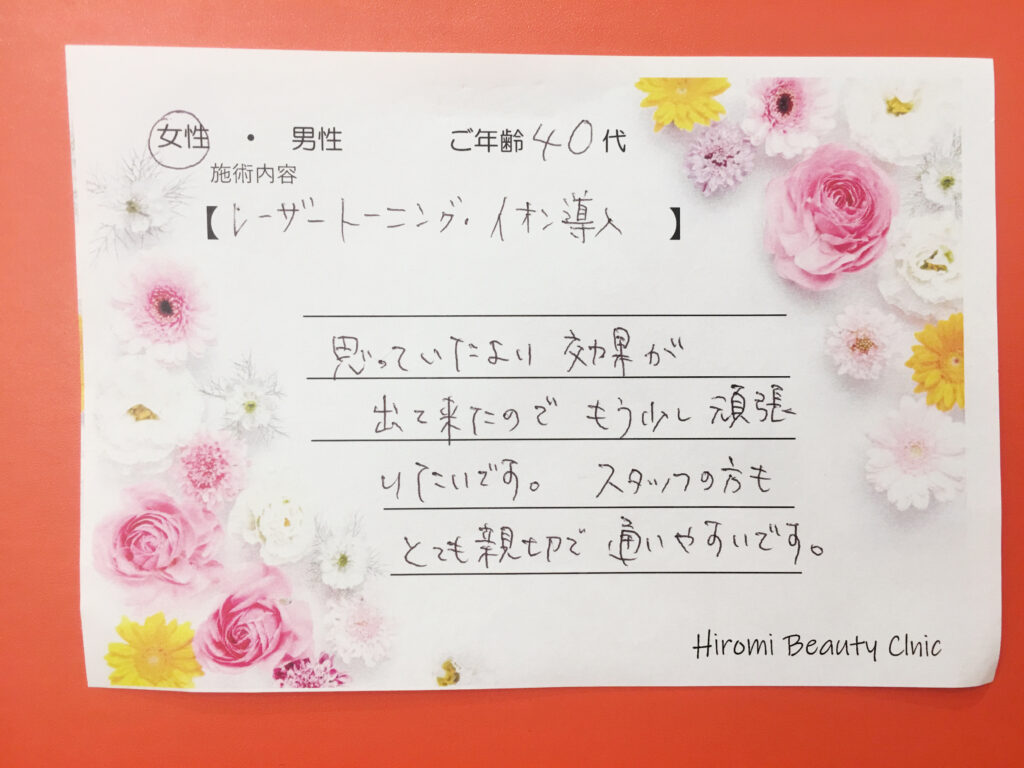 女性 ・ 男性 ご年齢 40 代
施術内容
【レーザートーニング・イオン導入 】
思っていたより 効果が
出て来たので もう少し 頑張
りたいです。 スタッフの方も
とても親切で 通いやすいです。
Hiromi Beauty Clnic